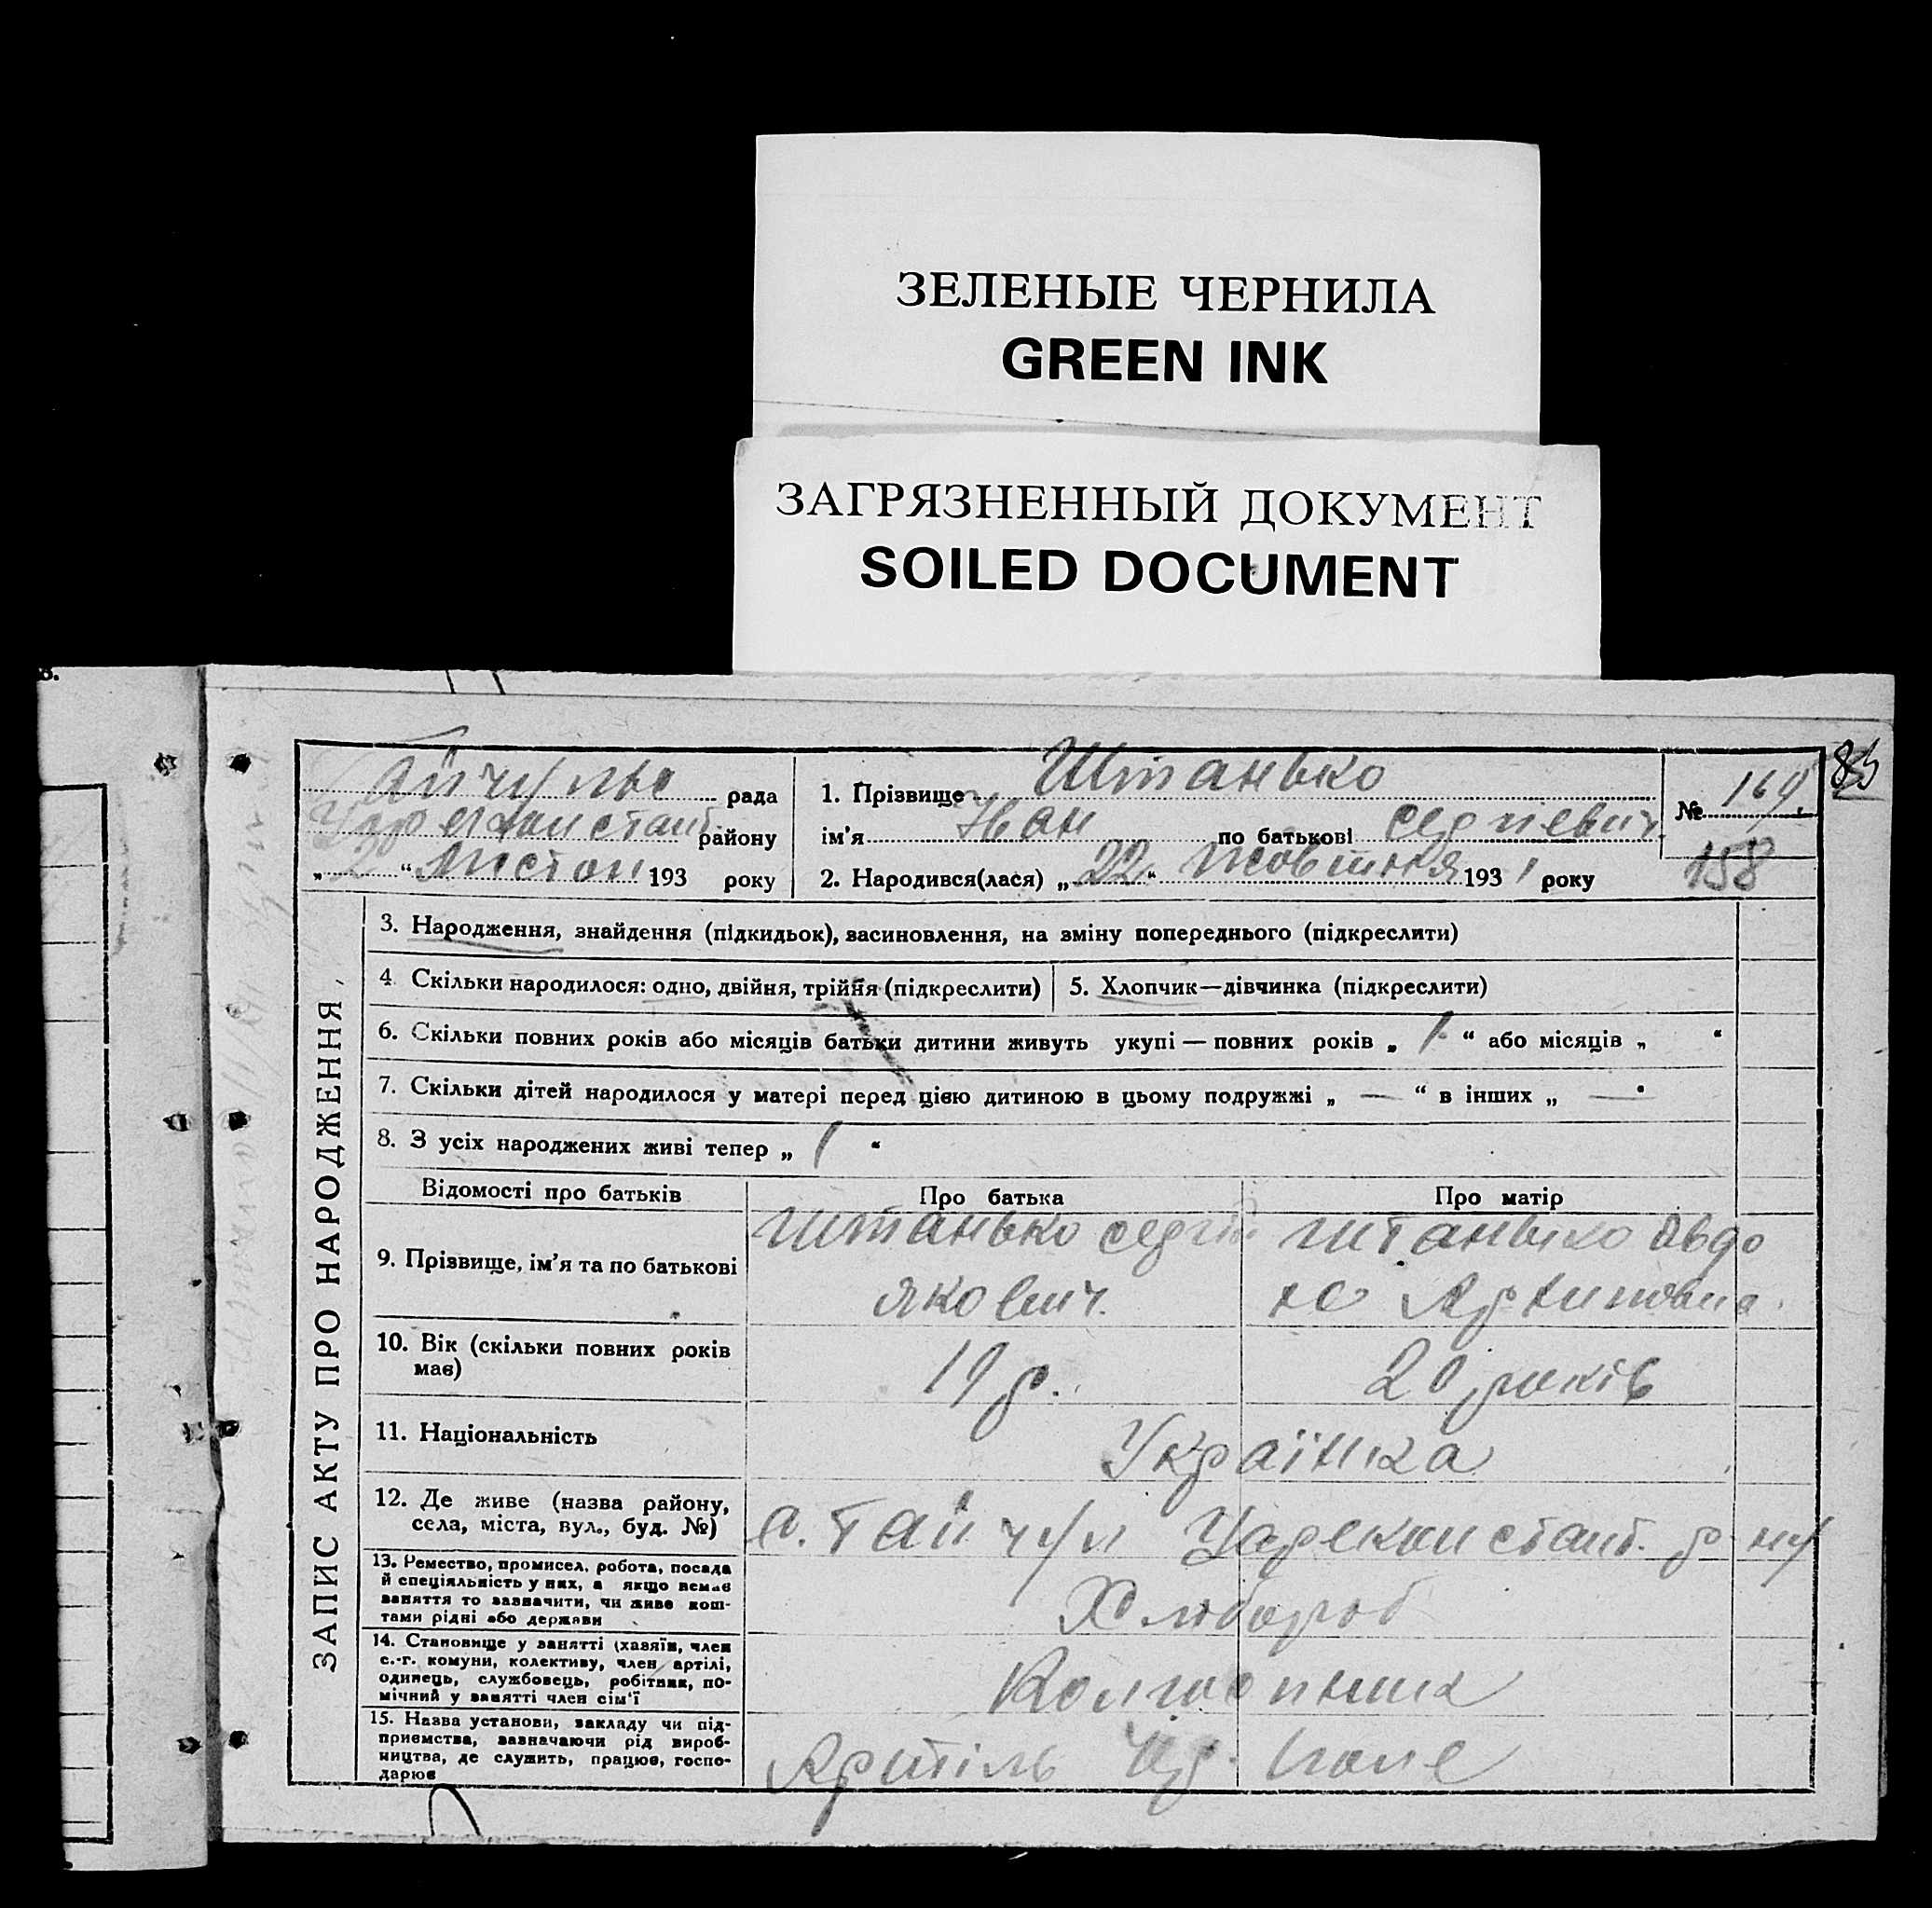 ЗЕЛЕНЫЕ ЧЕРНИЛА
GREEN INK
ЗАГРЯЗНЕННЫЙ ДОКУМЕНТ
SOILED DOCUMENT
рада
району
„ 2 “ Листоп 193 року
1. Прізвище Штанько
ім'я Іван по батькові Сергієвич
2. Народився(лася) „ 22 “ Жовтня 193 1 року
№ 164.
158
85
ЗАПИС АКТУ ПРО НАРОДЖЕННЯ
3. Народження, знайдення (підкидьок), засиновлення, на зміну попереднього (підкреслити)
4 Скільки народилося: одно, двійня, трійня (підкреслити)
5. Хлопчик—дівчинка (підкреслити)
6. Скільки повних років або місяців батьки дитини живуть укупі — повних років „ 1 “ або місяців „ “
7. Скільки дітей народилося у матері перед цією дитиною в цьому подружжі „ — “ в інших „ — “
8. З усіх народжених живі тепер „ 1 “
Відомості про батьків
Про батька
Про матір
9. Прізвище, ім'я та по батькові
Штанько Сергій
Якович.
Штанько Явдо
10. Вік (скільки повних років
має)
19 р.
20 років
11. Національність
Українка
12. Де живе (назва району,
села, міста, вул., буд. №)
с. Гайчул Цареконстант. р-ну
13. Ремество, промисел, робота, посада
й спеціяльність у них, а якщо немає
заняття то зазначити, чи живе кош-
тами рідні або держави
Хлібороб
14. Становище у занятті (хазяїн, член
с.-г. комуни, колективу, член артілі,
одинець, службовець, робітник, по-
мічний у занятті член сім'ї
Колгоспник
15. Назва установи, закладу чи під-
приємства, зазначаючи рід вироб-
ництва, де служить, працює, госпо-
дарює
Артіль Чер. поле